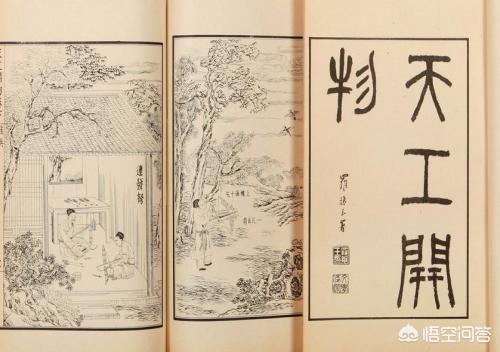 天工開
物
羅振玉署
連發弩
悟空问答